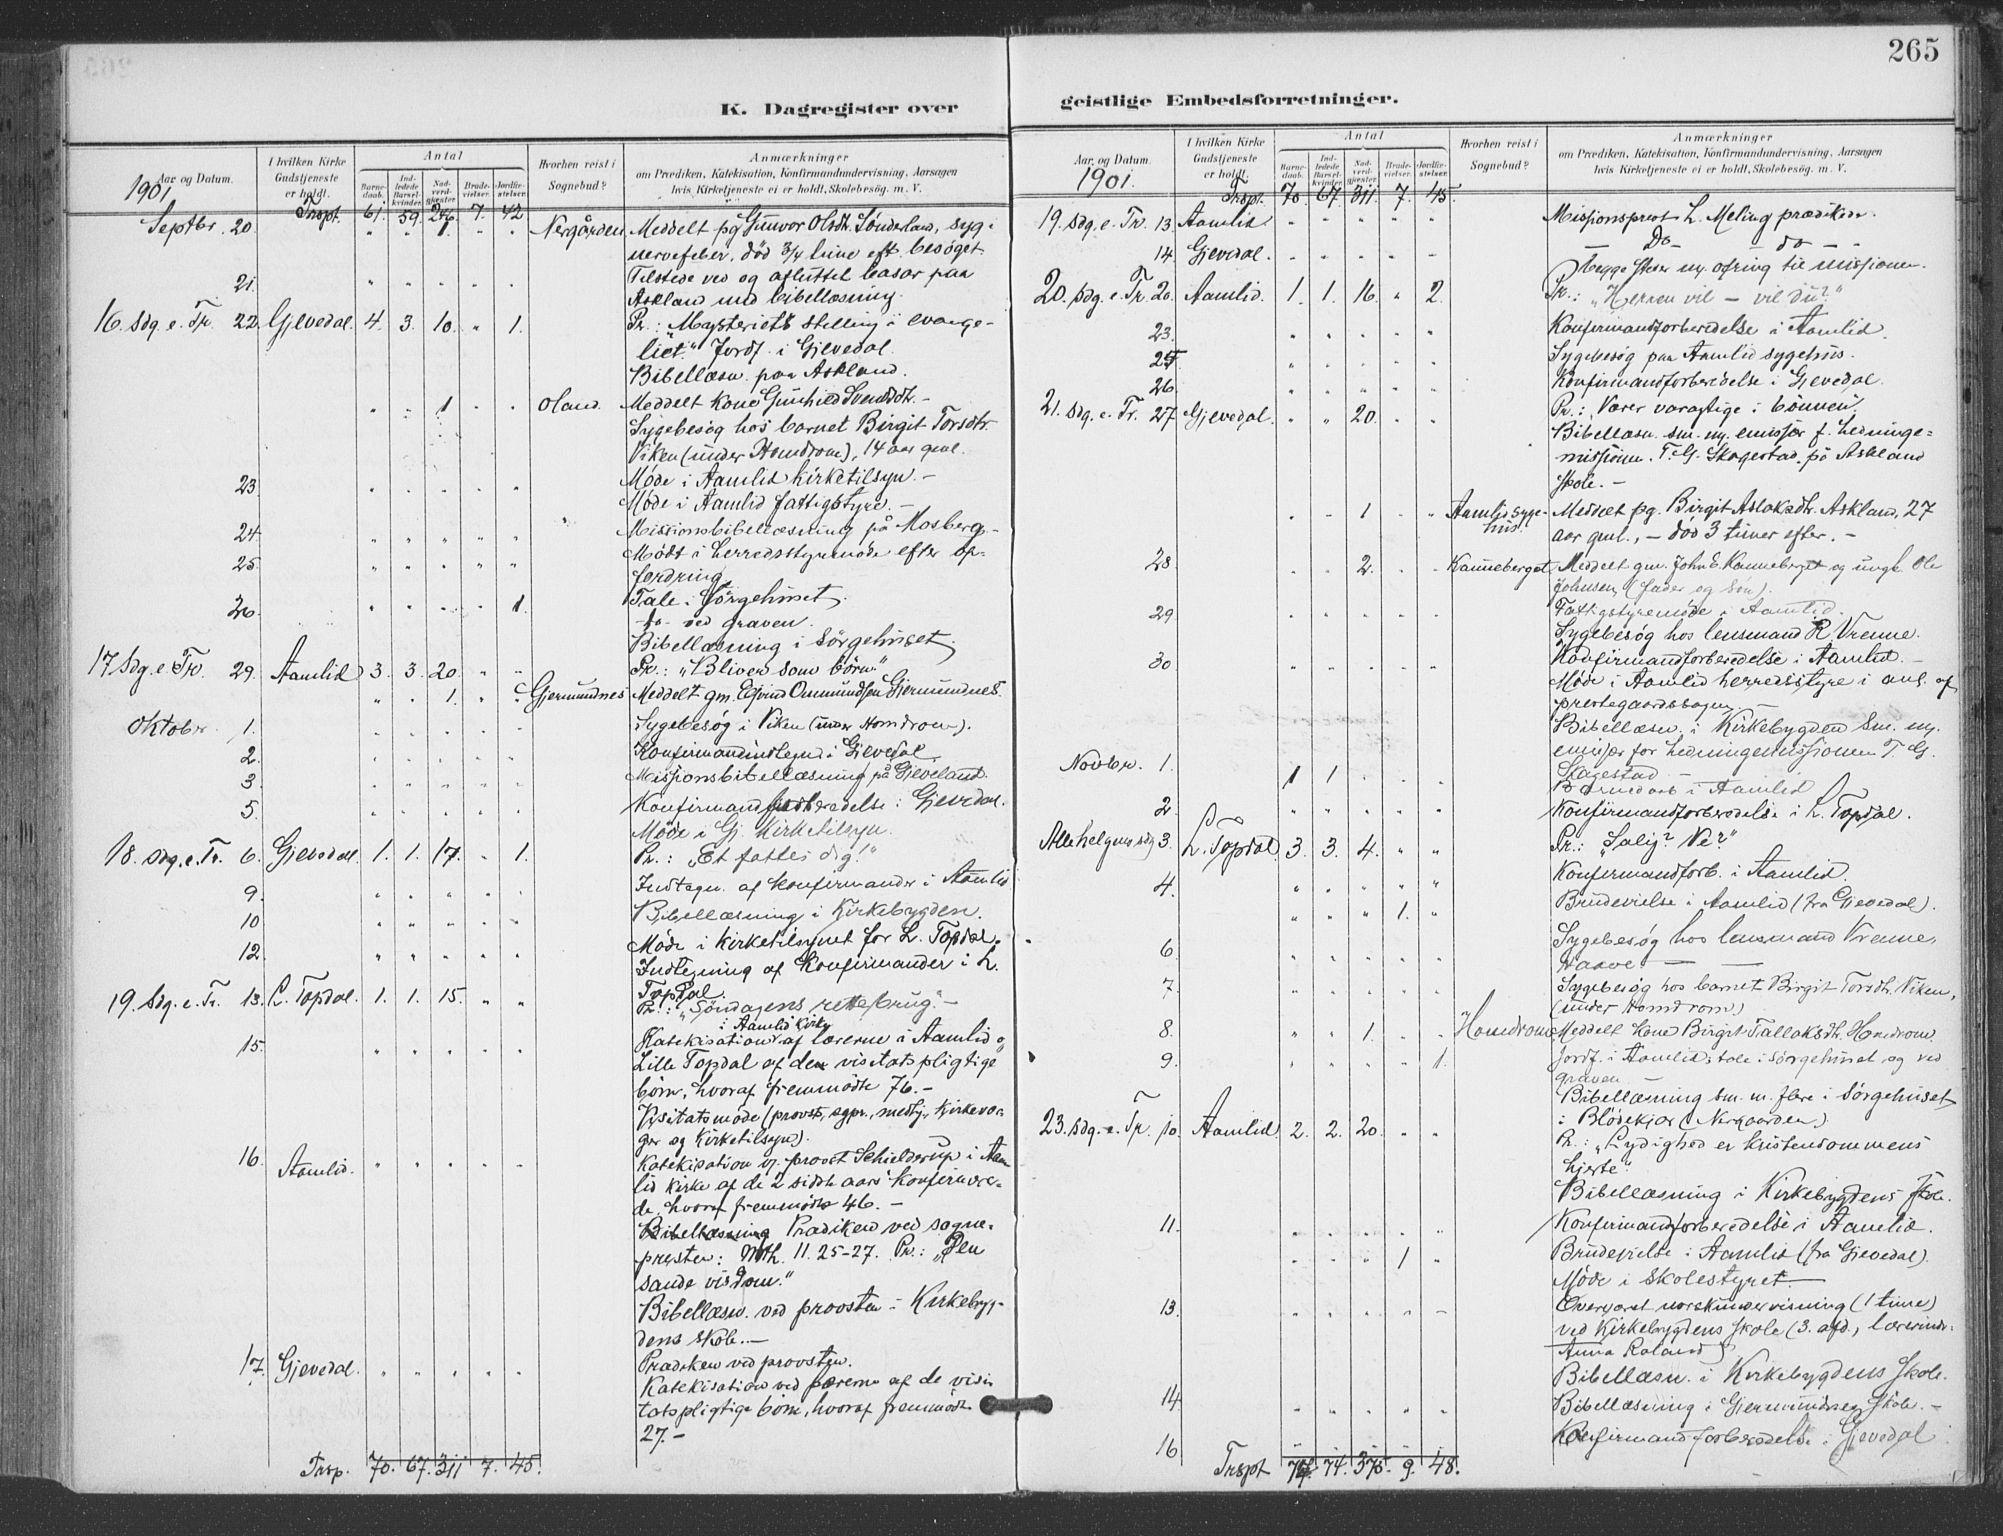 265
K. Dagregister over
geistlige Embedsforretninger.
Aar, og Datum.
1901
I hvilken Kirke Gudstjeneste er holdt.
Antal
Barne-daab.
Ind-ledede Barsel-kvinder.
Nad-verd-gjester.
Brude-vielser.
Jordfæ-stelser.
Hvorhen reist i Sognebud?
Anmærkninger
om Prædiken, Katekisation, Konfirmandundervisning, Aarsagen
hvis Kirketjeneste ei er holdt, Skolebesøg. m. V.
Trspt. 61. 59. 246. 7. 42
Septbr. 20. " " 1. " " Nergården Meddelt pg Gunvor Olsdtr. Sønderland, syg i
nervefeber, død 3/4 time eft. besøget.
21. " " " " " Tilstede ved og afsluttet basar paa
Askland med bibellæsning.
16. Sdg. e. Tr. 22. Gjevedal. 4. 3. 10. " 1. Pr.: "Mysteriets stilling i evange-
liet." Jordf. i Gjevedal.
Bibellæsn. paa Askland.
" " 1 " " Oland. Meddelt kone Gunhild Svensdtr. -
Sygebesøg hos barnet Birgit Torsdtr.
Viken (under Homdrom), 14 aar gml.
23. " " " " " Møde i Aamlid kirketilsyn. -
Møde i Aamlid fattigstyre. -
24. " " " " " Missionsbibellæsning på Mosberg. -
25. " " " " " Mødt i herredsstyremøde efter op-
fordring.
26. " " " " 1. Tale i sørgehuset.
- do - ved graven.
Bibellæsning i sørgehuset.
17 Sdg. e. Tr. 29. Aamlid 3. 3. 20. " " Pr.: "Bliver som børn."
" " 1. " " Gjermundnes Meddelt gm. Ejvind Ommundsen Gjermundnes.
Oktober 1. " " " " " Sygebesøg i Viken (under Homdrom).
2. " " " " " Konfirmandindtegn. i Gjevedal.
3 " " " " " Missionsbibellæsning på Gjeveland.
5. " " " " " Konfirmandforberedelse i Gjevedal.
Møde i Gj. Kirketilsyn.
18. Sdg. e. Tr. 6. Gjevedal 1. 1. 17. " 1. Pr.: "Et fattes dig!"
9. " " " " " Indtegn. af konfirmander i Aamlid
10 " " " " " Bibellæsning i Kirkebygden.
12. " " " " " Møde i kirketilsynet for L. Topdal.
Indtegning af konfirmander i L.
Topdal.
19. Sdg. e. Tr. 13. L. Topdal. 1. 1. 15. " " Pr.: "Søndagens rette brug." -
i Aamlid kirke
15. " " " " " Katekisation af lærerne i Aamlid o
Lille Topdal af den visitatspligtige
børn, hvoraf fremmødte 76. -
Visitatsmøde (provst, sgpr., medhj., kirkevær-
ger og kirketilsyn).
16. Aamlid. " " " " " Katekisation v. provst Schielderup i Aam
lid kirke af de 2 sidste aars konfirmere-
de, hvoraf fremmødte 46. -
Bibellæsning Prædiken ved sogne-
presten: Mth. 11. 25-27. Pr.: "Den
sande visdom."
Bibellæsn. ved provsten i Kirkebyg-
dens skole. -
17. Gjevedal. " " " " " Prædiken ved provsten.
Katekisation ved lærerne af de visi-
tatspligtige børn, hvoraf fremmødte
27. -
Trsp. 70. 67. 311 7. 45.
Aar, og Datum.
1901.
I hvilken Kirke Gudstjeneste er holdt.
Antal
Barne-daab.
Ind-ledede Barsel-kvinder.
Nad-verd-gjester.
Brude-vielser.
Jordfæ-stelser.
Hvorhen reist i Sognebud?
Anmærkninger
om Prædiken, Katekisation, Konfirmandundervisning, Aarsagen
hvis Kirketjeneste ei er holdt, Skolebesøg. m. V.
Trspt. 70. 67. 311. 7. 45.
19. Sdg. e. Tr. 13 Aamlid " " " " " Missionsprest L. Meling prædiken.
14. Gjevedal. " " " " " - Do - - do - -
Begge steder m. ofring til missionen.
20. Sdg. e. Tr. 20. Aamlid. 1. 1. 16. " 2. Pr.: "Herren vil - vil du?"
23. " " " " " Konfirmandforberedelse i Aamlid.
25 Sygebesøg paa Aamlid sygehus.
26. " " " " " Konfirmandforberedelse i Gjevedal.
21. Sdg. e. Tr. 27 Gjevedal. " " 20. " " Pr.: "Værer varagtige i bønnen".
Bibellæsn. sm. m. emissær f. hedninge-
missionen T. G. Skagestad på Askland
skole. -
" " 1 " " Aamlid syge-hus. Meddelt pg. Birgit Aslaksdtr. Askland, 27
aar gml., - død 3 timer efter. -
28. " " 2. " " Kanneberget Meddelt gm. John E. Kanneberget og ungk. Ole
Johnsen (fader og søn).
29 " " " " " Fattigstyremøde i Aamlid.
Sygebesøg hos lensmand R Vrenne.
30. " " " " " Konfirmandforberedelse i Aamlid. -
Møde i Aamlid herredsstyre i anl. af
prestegaardssagen. -
Bibellæsn. i Kirkebygden sm. m.
emissær for hedningemissionen T. G.
Skagestad. -
Novbr. 1. 1 1 " " " Barnedaab i Aamlid
2. " " " " " Konfirmandforberedelse i L. Topdal.
Allehelgens sdg 3. L. Topdal 3. 3. 4. " " Pr.: "Salig? Ve?"
4. " " " " " Konfirmandforb. i Aamlid.
" " " 1. " Brudevielse i Aamlid (fra Gjevedal).
6. " " " " " Sygebesøg hos lensmand Vrenne,
Haave. - -
7. " " " " " Sygebesøg hos barnet Birgit Torsdtr. Viken,
(under Homdrom)
8. " " 1. " " Homdrom Meddelt kone Birgit Tallaksdtr. Homdrom.
9. " " " " 1. Jordf. i Aamlid; tale i sørgehuset og ved
graven -
Bibellæsning sm. m. flere i sørgehuset
i Blødekjær (Nergaarden)
23. Sdg. e. Tr. 10. Aamlid 2. 2. 20. " " Pr.: "Lydighed er kristendommens
hjerte".
Bibellæsning i Kirkebygdens skole.
11. " " " " " Konfirmandforberedelse i Aamlid.
" " " 1 " Brudevielse i Aamlid (fra Gjevedal).
Møde i skolestyret. -
13. " " " " " Overværet norskundervisning (1 time)
ved Kirkebygdens skole (3. afd., lærerinde
Anna Roland)
Bibellæsn. i Kirkebygdens skole.
14. " " " " " Bibellæsning i Gjermundnes skole. -
16 " " " " " Konfirmandforberedelse i Gjevedal
Trspt 77. 74. 375. 9. 48.